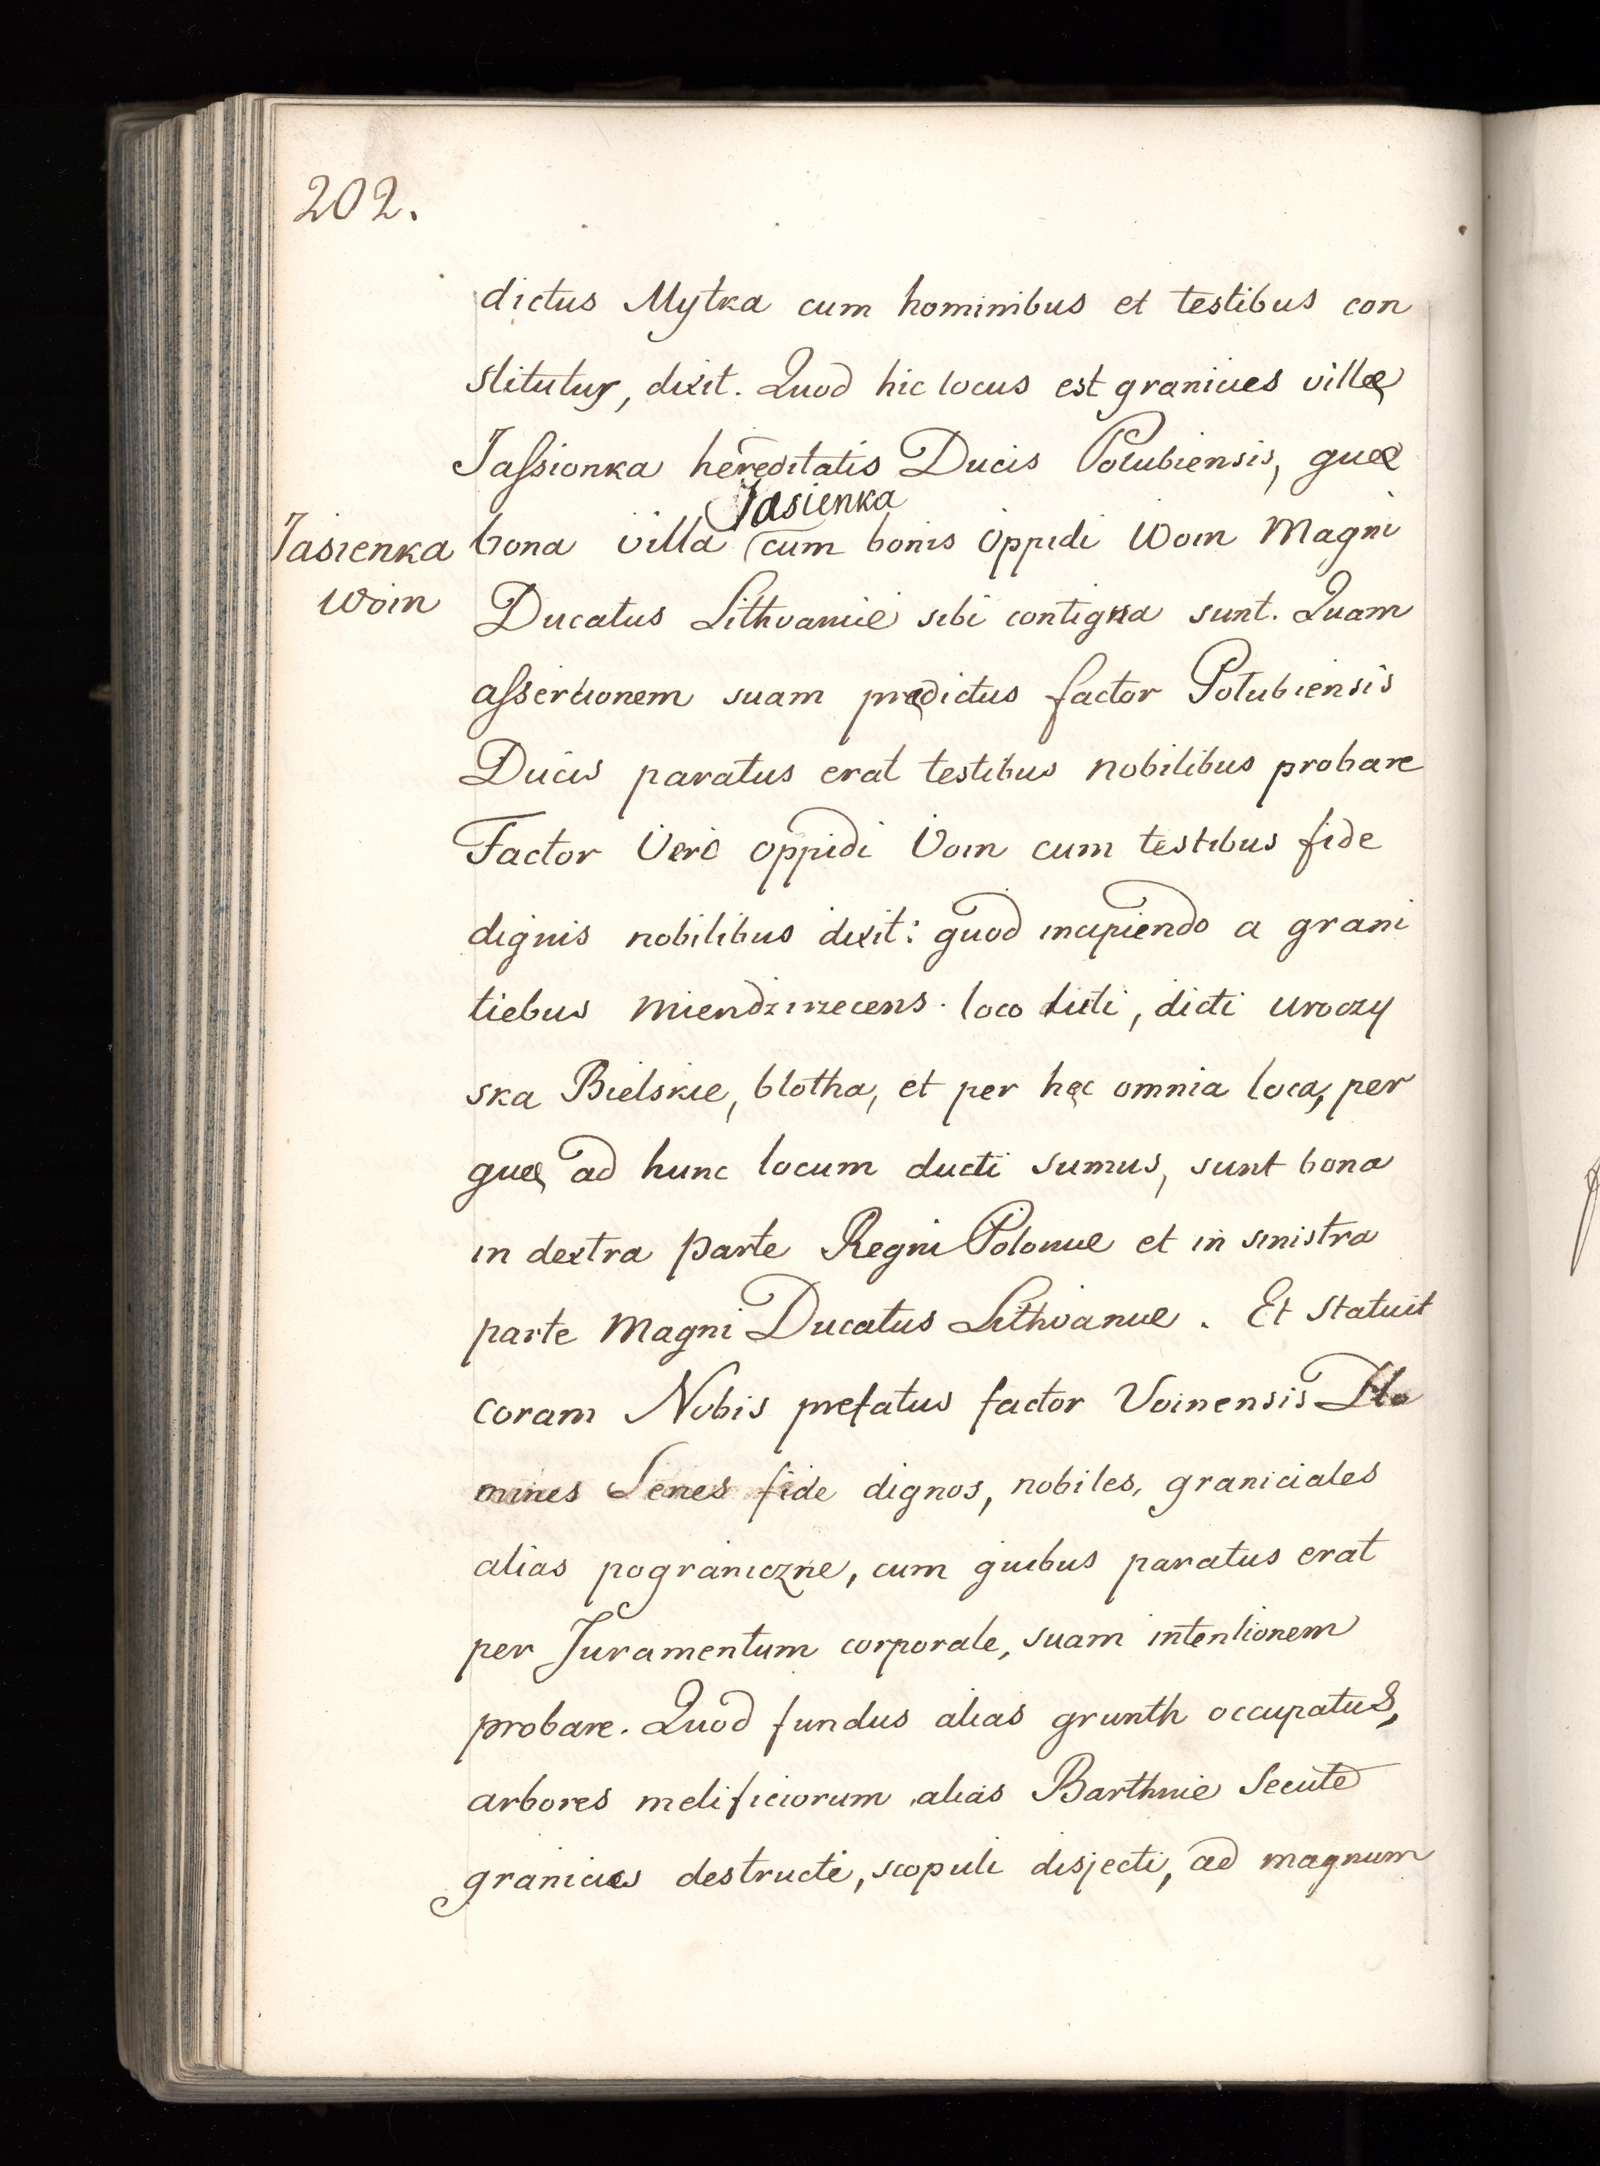 202.
dictus Mytka cum hominibus et testibus con
stitutus, dixit. Quod hic locus est granicies villæ
Jassionka hereditatis Ducis Polubiensis, quæ
Jasienka
Jasienka
bona villa cum bonis oppidi Woin Magni
Woin
Ducatus Lithvaniæ sibi contigua sunt. Quam
assertionem suam prædictus factor Polubiensis
Ducis paratus erat testibus nobilibus probare
Factor vero oppidi Voin cum testibus fide
dignis nobilibus dixit: quod incipiendo a grani
tiebus Miendzirzecens. loco dicti, dicti uroczy
ska Bielskie, blotha, et per hęc omnia loca, per
quæ ad hunc locum ducti sumus, sunt bona
in dextra parte Regni Poloniæ et in sinistra
parte Magni Ducatus Lithvaniæ. Et statuit
coram Nobis prefatus factor Voinensis Ho
mines Senes fide dignos, nobiles, graniciales
alias pograniczne, cum quibus paratus erat
per Juramentum corporale, suam intentionem
probare. Quod fundus alias grunth occupatus,
arbores melificiorum alias Barthnie Secute
granicies destructe, scopuli disjecti, ad magnum